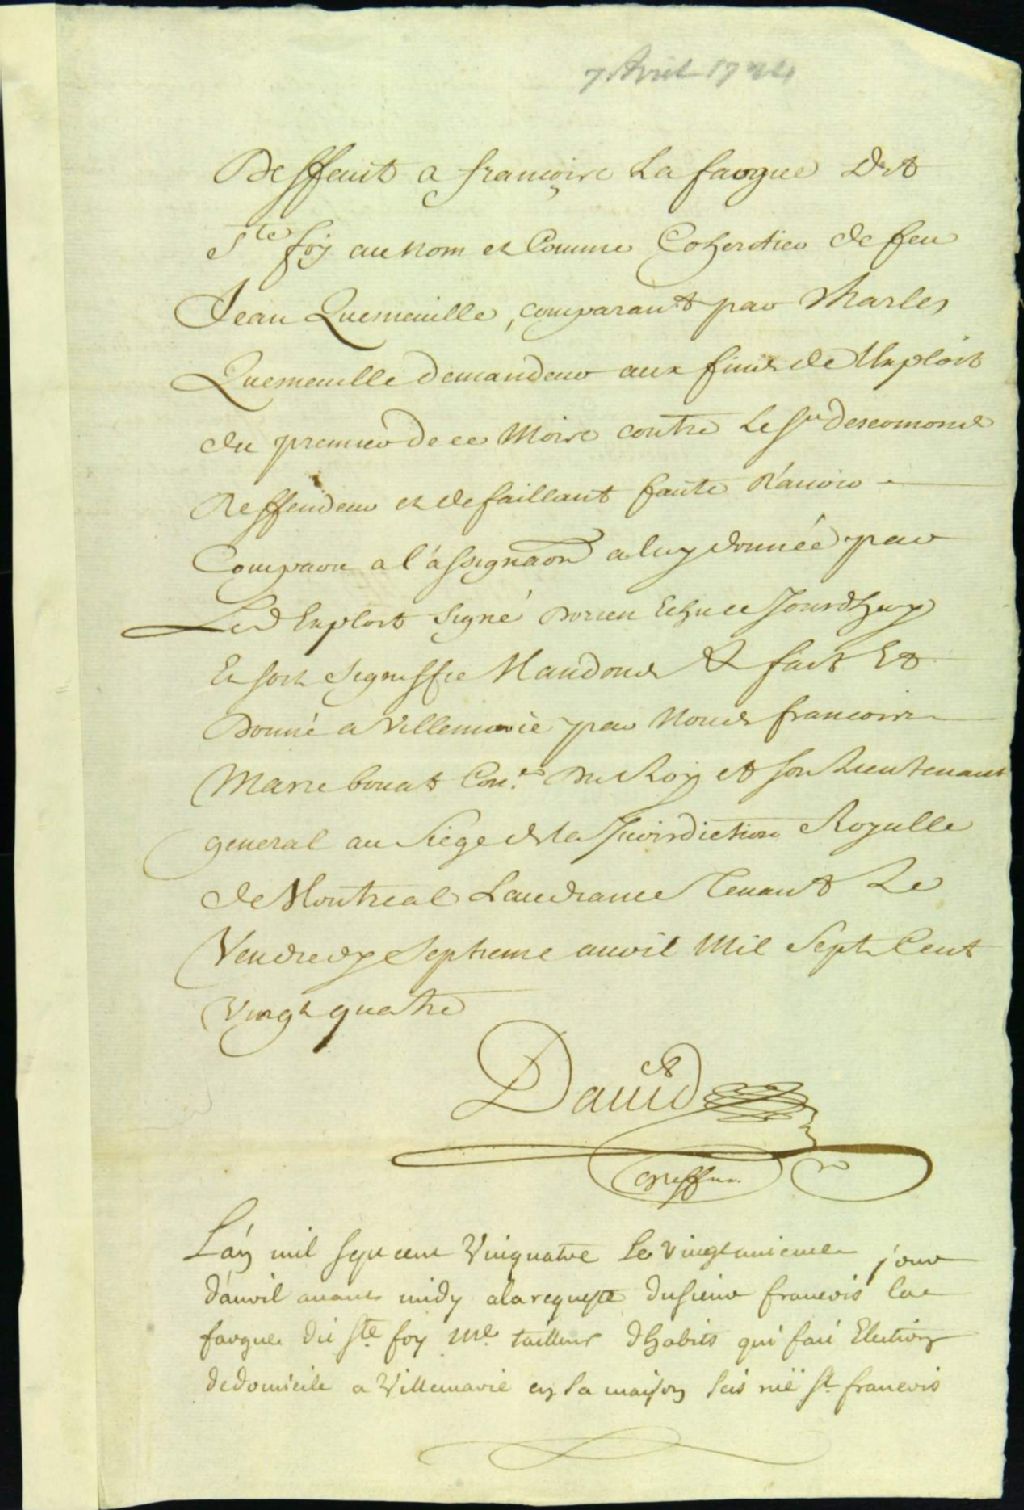 7 Avril 1724
Deffault a francoise La fargue Dit
Ste foy au nom et Comme Coheritier de feu
Jean Quemeuille, comparant par Charles
Quemeuille demandeur aux fins de Exploit
du premier de ce Mois contre Le Sr Descomond
Deffendeur et defaillant faute D'auoir
Comparu a l'assignãon a luy donnée par
Led Exploit Signé Dorien Echu ce Jourdhuy
Et soit Signiffie Mandons & fait Et
Donné a Villemarie par Nous francoise
Marie bouat Conr Du Roy et son Lieutenant
general au Siege de la Jurisdiction Royalle
de Montreal Laudiance Tenant Le
Vendredy Septieme auril Mil Sept Cent
Vingt quatre
Dauid
Greffier
L'an mil sept cent Vingquatre le vingtunieme jour
d'auril auant midy a la requeste du sieur francois la
fargue dit ste foy Me tailleur d'habits qui fait Election
de domicile a Villemarie en sa maison scis rüe st francois